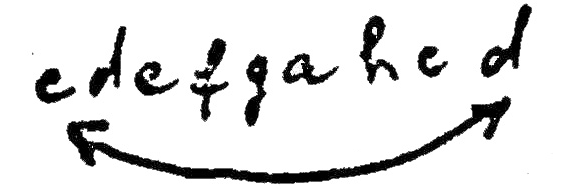 c d e f g a h c d